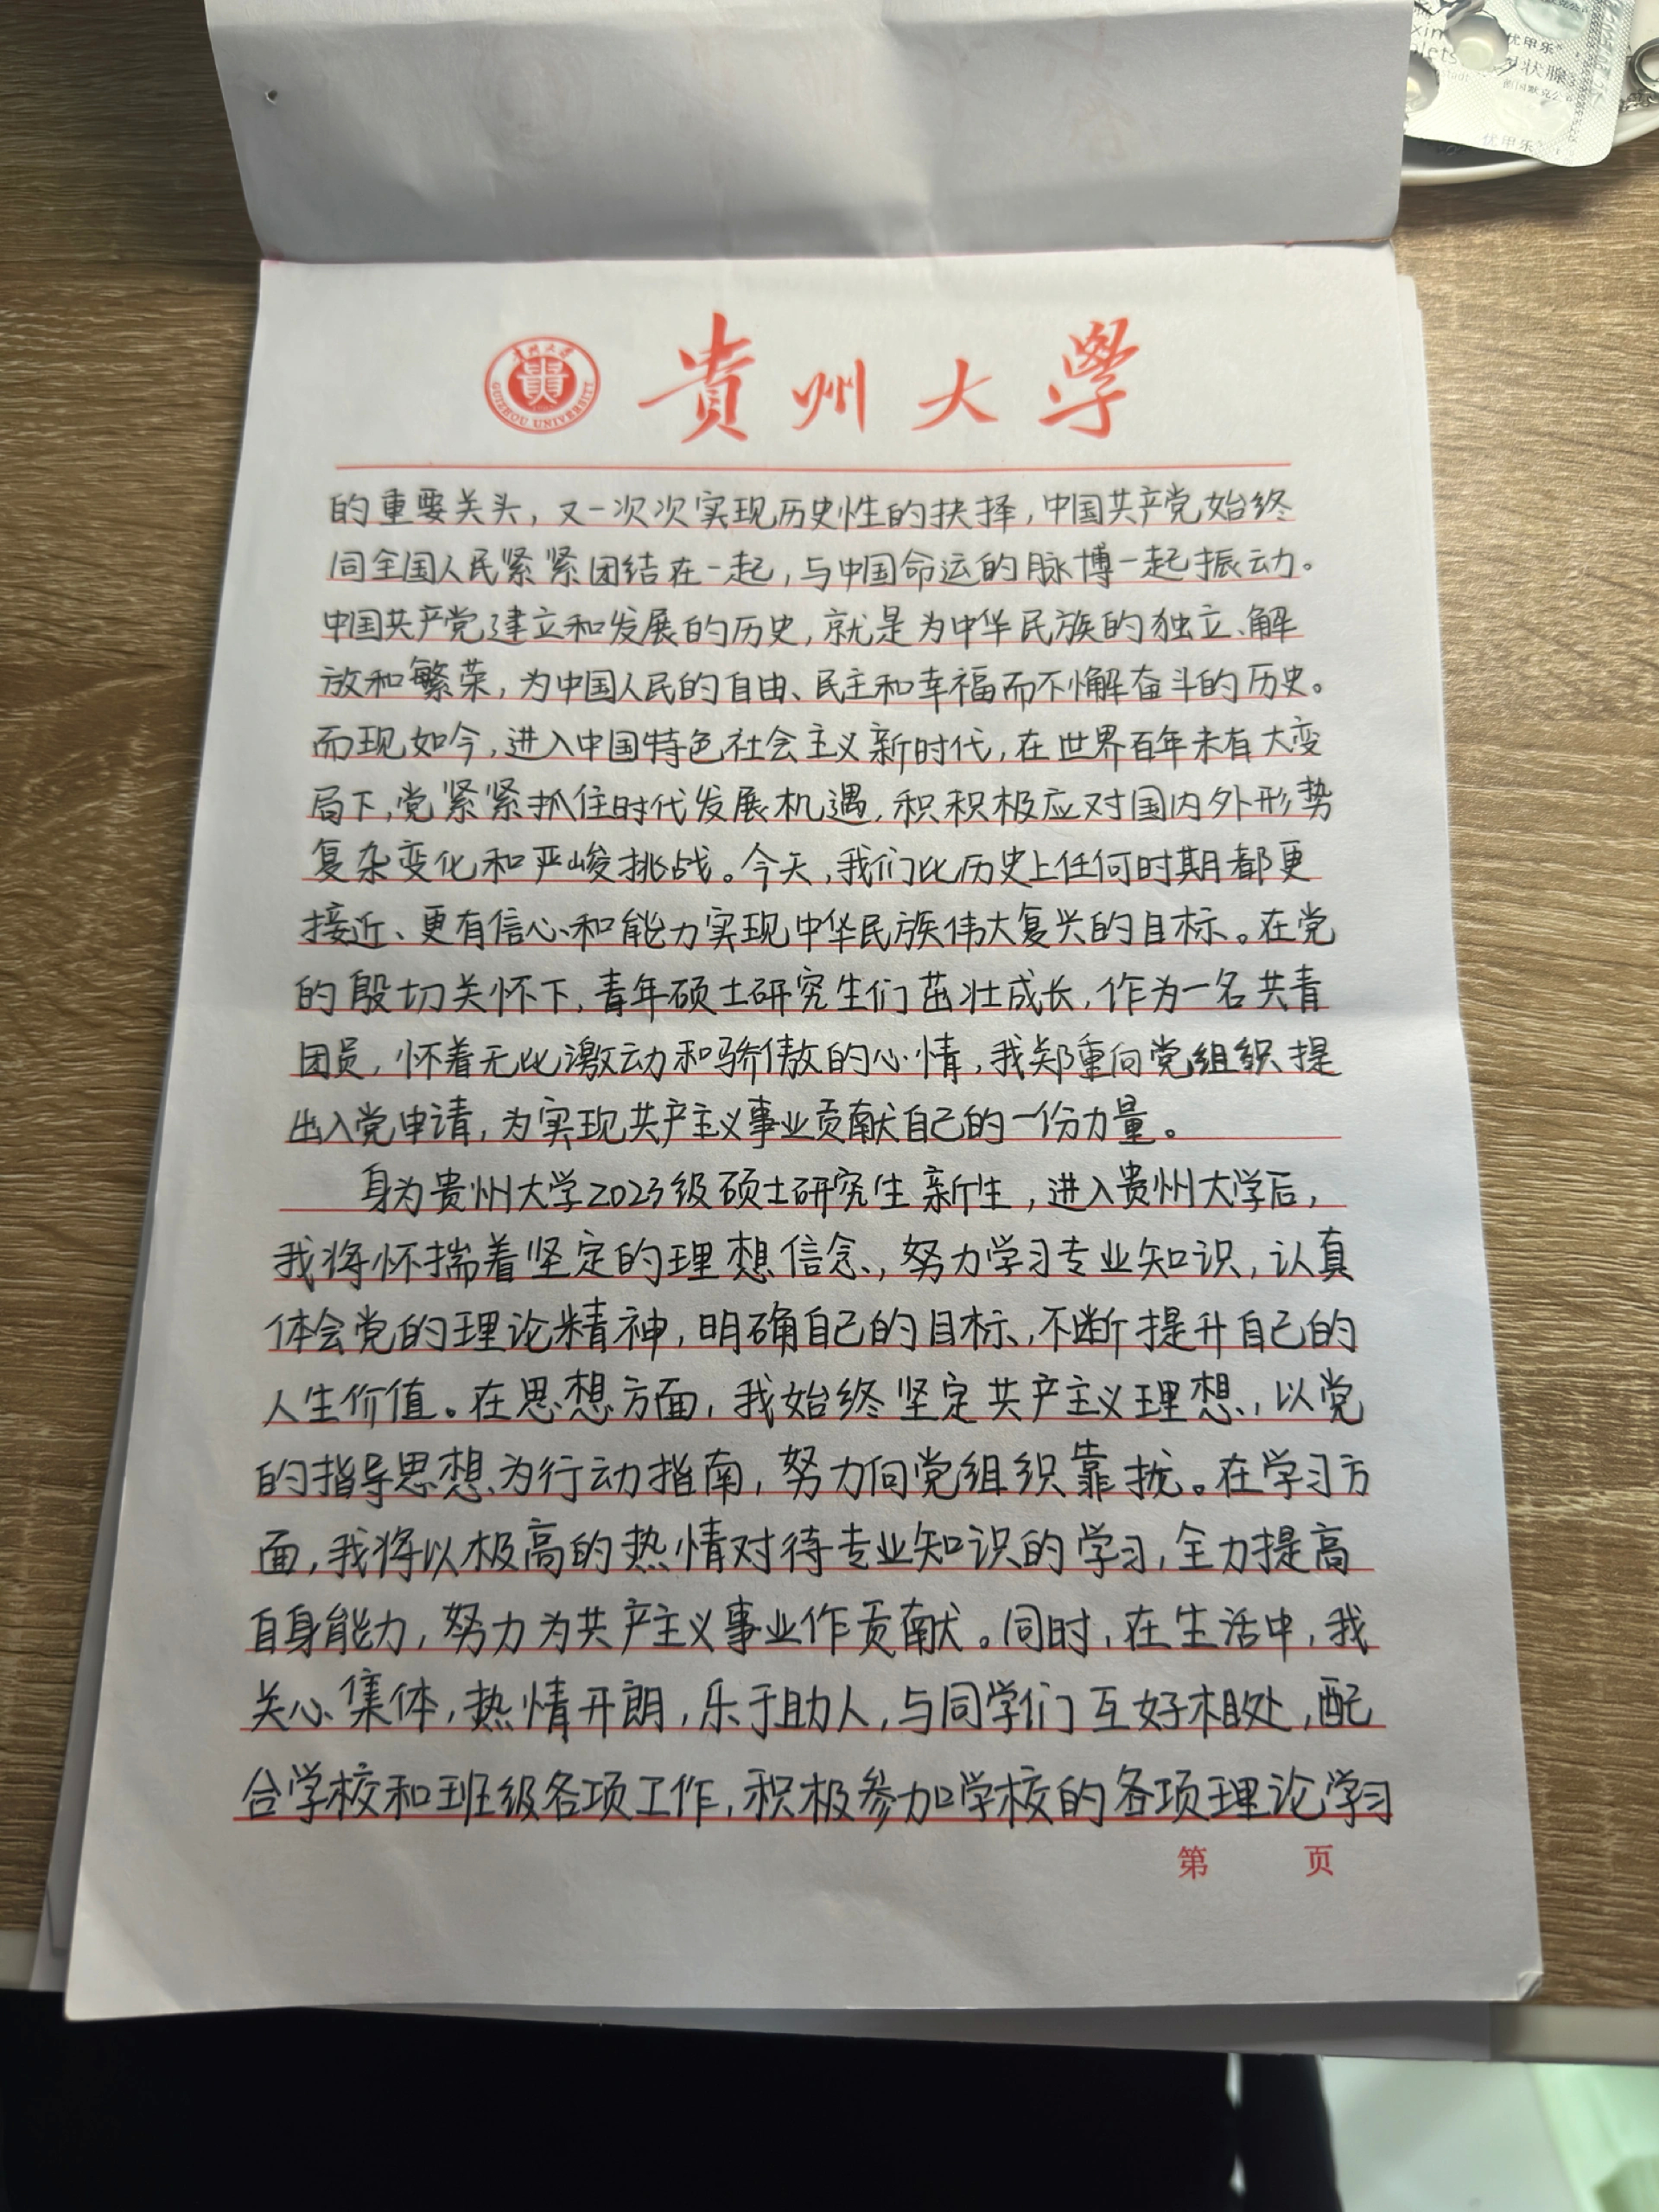 优甲乐
优甲乐
贵州大学
貴
GUIZHOU UNIVERSITY
貴州大學
的重要关头，又一次次实现历史性的抉择，中国共产党始终
同全国人民紧紧团结在一起，与中国命运的脉博一起振动。
中国共产党建立和发展的历史，就是为中华民族的独立、解
放和繁荣，为中国人民的自由、民主和幸福而不懈奋斗的历史。
而现如今，进入中国特色社会主义新时代，在世界百年未有大变
局下，党紧紧抓住时代发展机遇，积积极应对国内外形势
复杂变化和严峻挑战。今天，我们比历史上任何时期都更
接近、更有信心和能力实现中华民族伟大复兴的目标。在党
的殷切关怀下，青年硕士研究生们茁壮成长，作为一名共青
团员，怀着无比激动和骄傲的心情，我郑重向党组织提
出入党申请，为实现共产主义事业贡献自己的一份力量。
身为贵州大学2023级硕士研究生新生，进入贵州大学后，
我将怀揣着坚定的理想信念，努力学习专业知识，认真
体会党的理论精神，明确自己的目标，不断提升自己的
人生价值。在思想方面，我始终坚定共产主义理想，以党
的指导思想为行动指南，努力向党组织靠拢。在学习方
面，我将以极高的热情对待专业知识的学习，全力提高
自身能力，努力为共产主义事业作贡献。同时，在生活中，我
关心集体，热情开朗，乐于助人，与同学们互好相处，配
合学校和班级各项工作，积极参加学校的各项理论学习
第 页